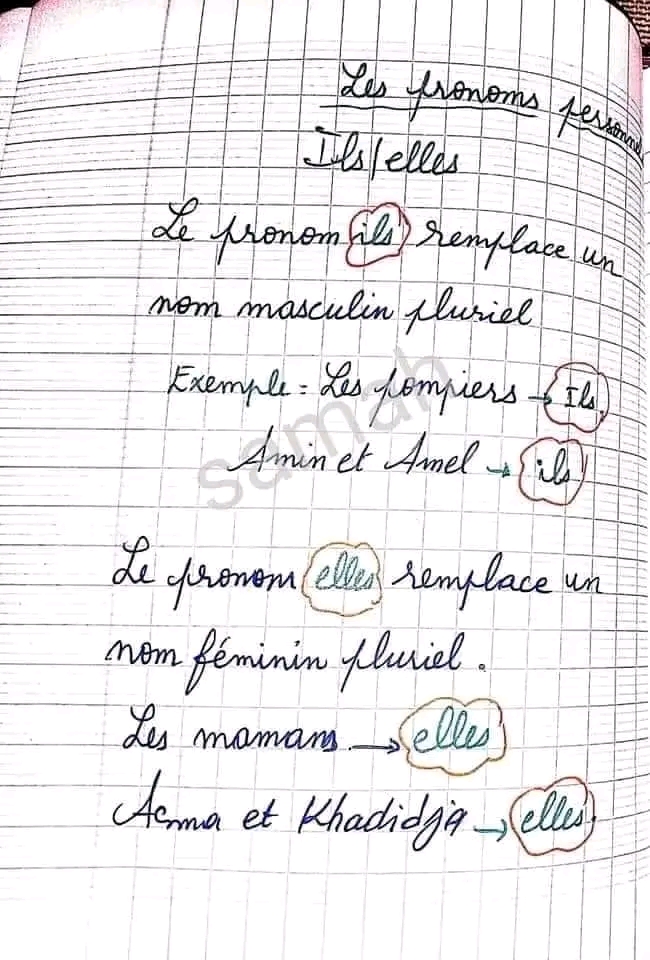 Les pronoms personnel
Ils/elles
Le pronom ils remplace un
nom masculin pluriel
Exemple = Les pompiers → Ils.
Amin et Amel → ils
samah
Le pronom elles remplace un
nom féminin pluriel.
Les mamans → elles
et Khadidja → elles.